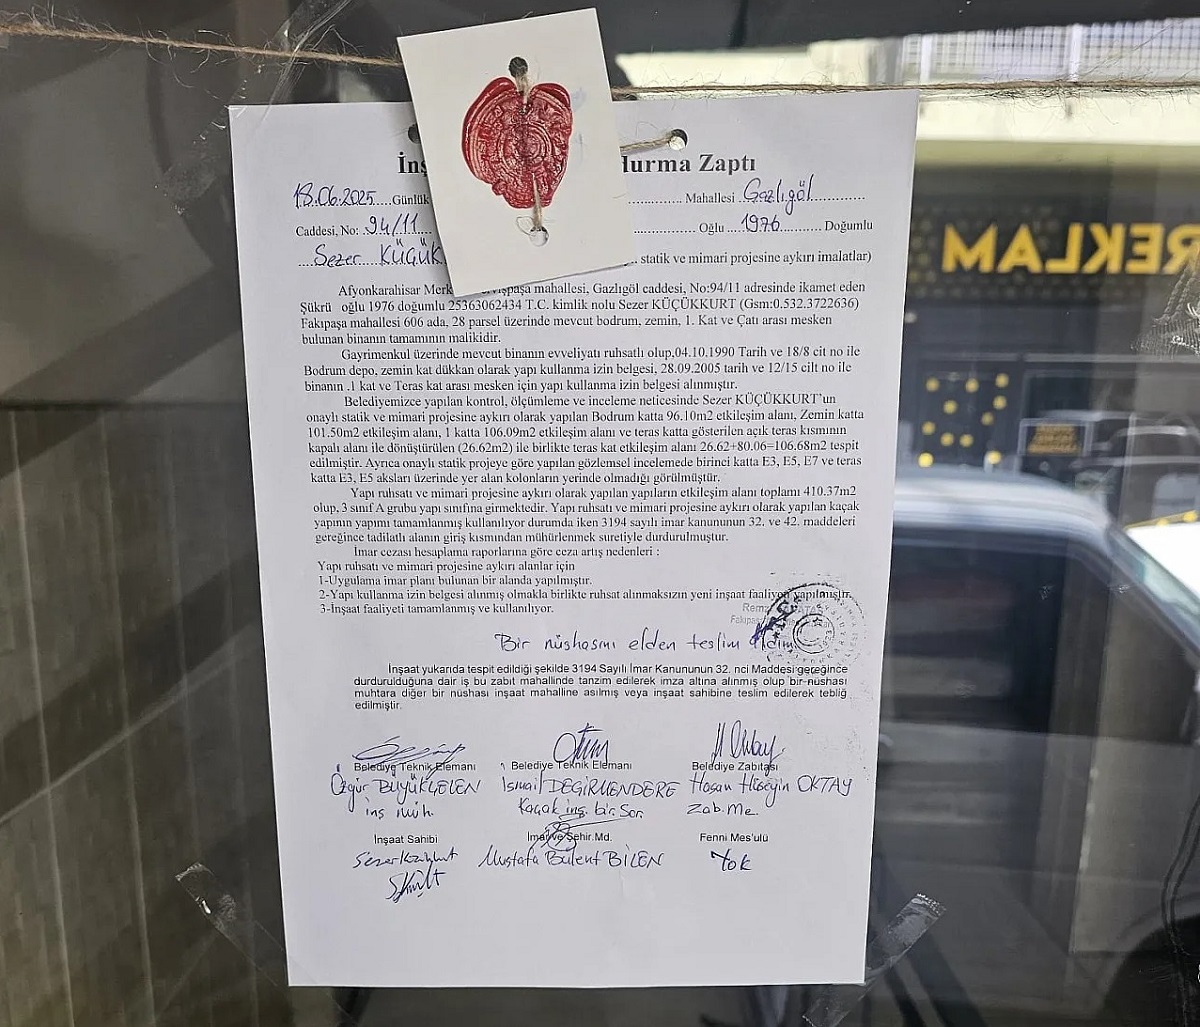 İnş durma Zaptı
18.06.2025 ....Günlük ............ Mahallesi .Gazlıgöl..............
Caddesi, No: ..94/11.... ............... Oğlu ....1976............ Doğumlu
....Sezer KÜÇÜK statik ve mimari projesine aykırı imalatlar)
Afyonkarahisar Merk paşa mahallesi, Gazlıgöl caddesi, No:94/11 adresinde ikamet eden
Şükrü oğlu 1976 doğumlu 25363062434 T.C. kimlik nolu Sezer KÜÇÜKKURT (Gsm:0.532.3722636)
Fakıpaşa mahallesi 606 ada, 28 parsel üzerinde mevcut bodrum, zemin, 1. Kat ve Çatı arası mesken
bulunan binanın tamamının malikidir.
Gayrimenkul üzerinde mevcut binanın evveliyatı ruhsatlı olup,04.10.1990 Tarih ve 18/8 cit no ile
Bodrum depo, zemin kat dükkan olarak yapı kullanma izin belgesi, 28.09.2005 tarih ve 12/15 cilt no ile
binanın .1 kat ve Teras kat arası mesken için yapı kullanma izin belgesi alınmıştır.
Belediyemizce yapılan kontrol, ölçümleme ve inceleme neticesinde Sezer KÜÇÜKKURT'un
onaylı statik ve mimari projesine aykırı olarak yapılan Bodrum katta 96.10m2 etkileşim alanı, Zemin katta
101.50m2 etkileşim alanı, 1 katta 106.09m2 etkileşim alanı ve teras katta gösterilen açık teras kısmının
kapalı alanı ile dönüştürülen (26.62m2) ile birlikte teras kat etkileşim alanı 26.62+80.06=106.68m2 tespit
edilmiştir. Ayrıca onaylı statik projeye göre yapılan gözlemsel incelemede birinci katta E3, E5, E7 ve teras
katta E3, E5 aksları üzerinde yer alan kolonların yerinde olmadığı görülmüştür.
Yapı ruhsatı ve mimari projesine aykırı olarak yapılan yapıların etkileşim alanı toplamı 410.37m2
olup, 3 sınıf A grubu yapı sınıfına girmektedir. Yapı ruhsatı ve mimari projesine aykırı olarak yapılan kaçak
yapının yapımı tamamlanmış kullanılıyor durumda iken 3194 sayılı imar kanununun 32. ve 42. maddeleri
gereğince tadilatlı alanın giriş kısmından mühürlenmek suretiyle durdurulmuştur.
İmar cezası hesaplama raporlarına göre ceza artış nedenleri :
Yapı ruhsatı ve mimari projesine aykırı alanlar için
1-Uygulama imar planı bulunan bir alanda yapılmıştır.
2-Yapı kullanma izin belgesi alınmış olmakla birlikte ruhsat alınmaksızın yeni inşaat faaliyeti yapılmıştır.
3-İnşaat faaliyeti tamamlanmış ve kullanılıyor.
Bir nüshasını elden teslim aldım
İnşaat yukarıda tespit edildiği şekilde 3194 Sayılı İmar Kanununun 32. nci Maddesi gereğince
durdurulduğuna dair iş bu zabıt mahallinde tanzim edilerek imza altına alınmış olup bir nüshası
muhtara diğer bir nüshası inşaat mahalline asılmış veya inşaat sahibine teslim edilerek tebliğ
edilmiştir.
Belediye Teknik Elemanı Belediye Teknik Elemanı Belediye Zabıtası
Özgür BÜYÜKÇELEN İsmail DEĞİRMENDERE Hasan Hüseyin OKTAY
inş müh. Kaçak inş. bir. Sor. Zab. Me.
İnşaat Sahibi İmar ve Şehir.Md. Fenni Mes'ulü
Mustafa Bülent BİLEN Yok
REKLAM